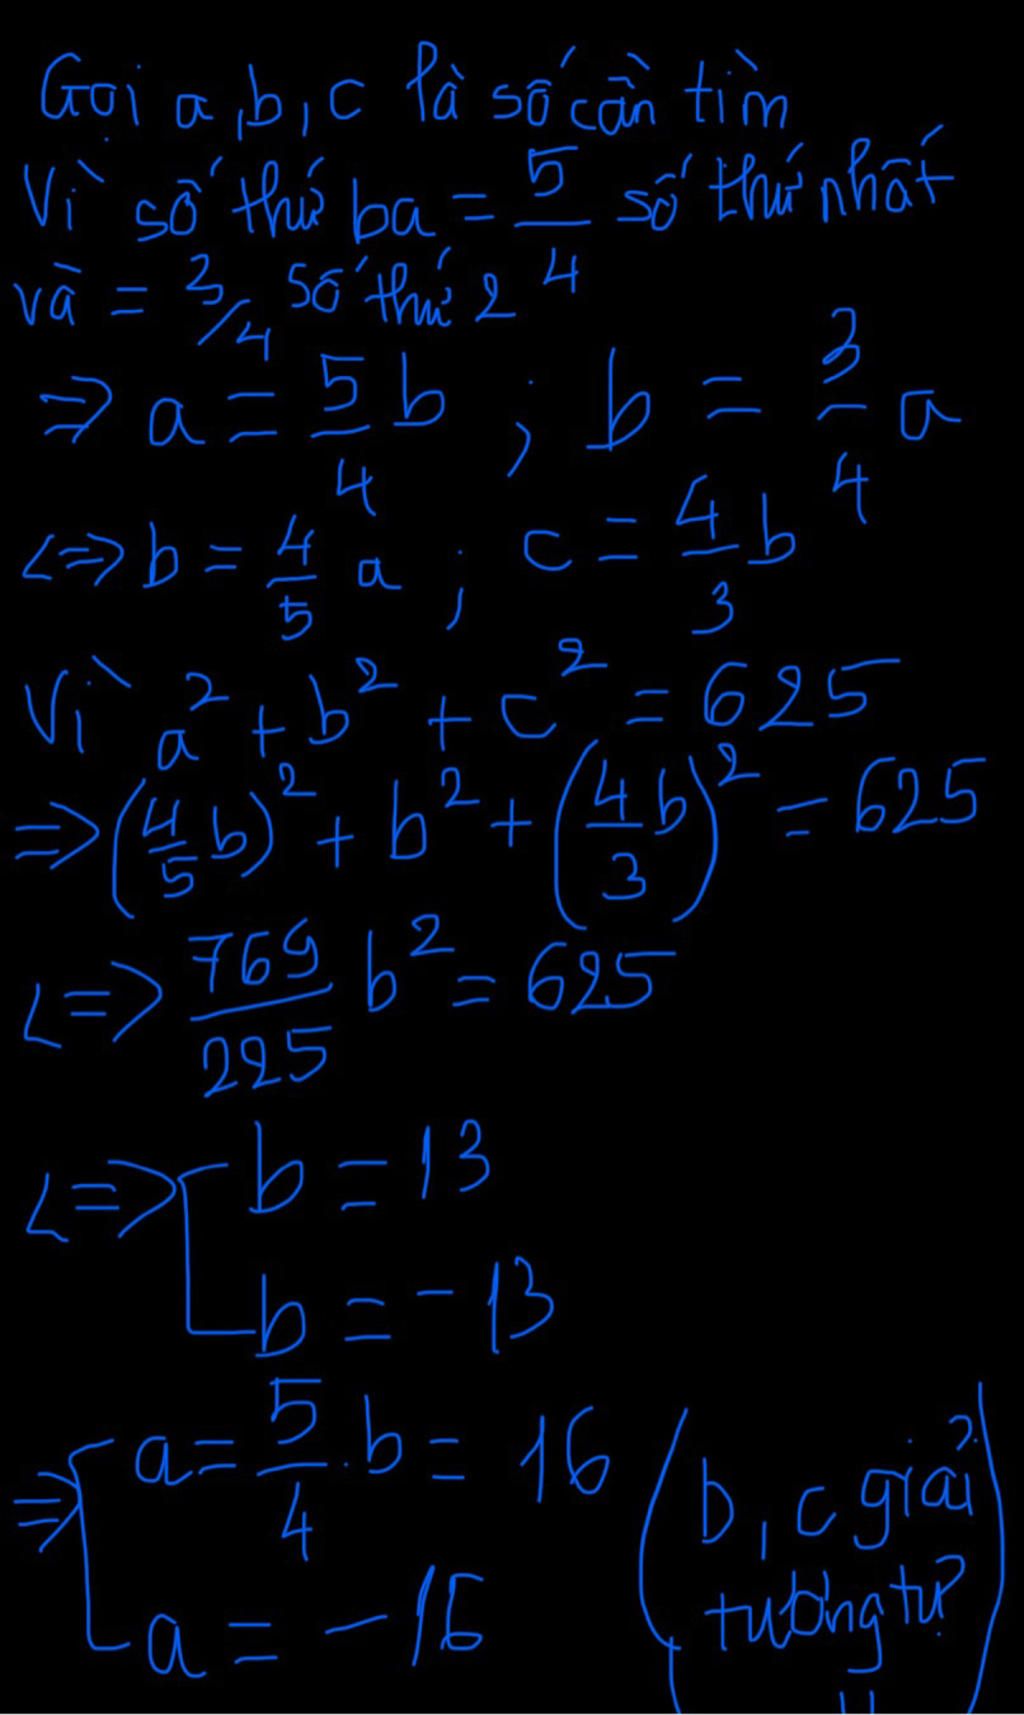 Gọi a, b, c là số cần tìm
Vì số thứ ba = 5/4 số thứ nhất
và = 3/4 số thứ 2
=> a = 5/4 b ; b = 3/4 a
<=> b = 4/5 a ; c = 4/3 b
Vì a² + b² + c² = 625
=> (4/5 b)² + b² + (4/3 b)² = 625
<=> 769/225 b² = 625
<=> b = 13
b = -13
=> a = 5/4 . b = 16
a = -16
(b, c giải
tương tự)